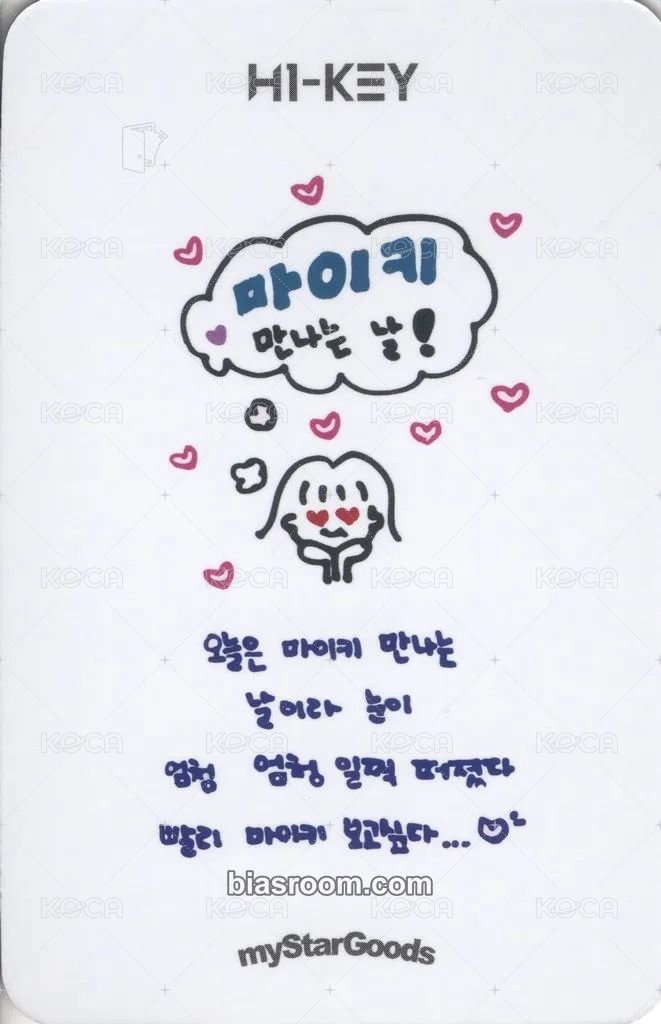 H1-KEY
마이키
만나는 날!
오늘은 마이키 만나는
날이라 눈이
엄청 엄청 일찍 떠졌다
빨리 마이키 보고싶다...
biasroom.com
myStarGoods
KOCA